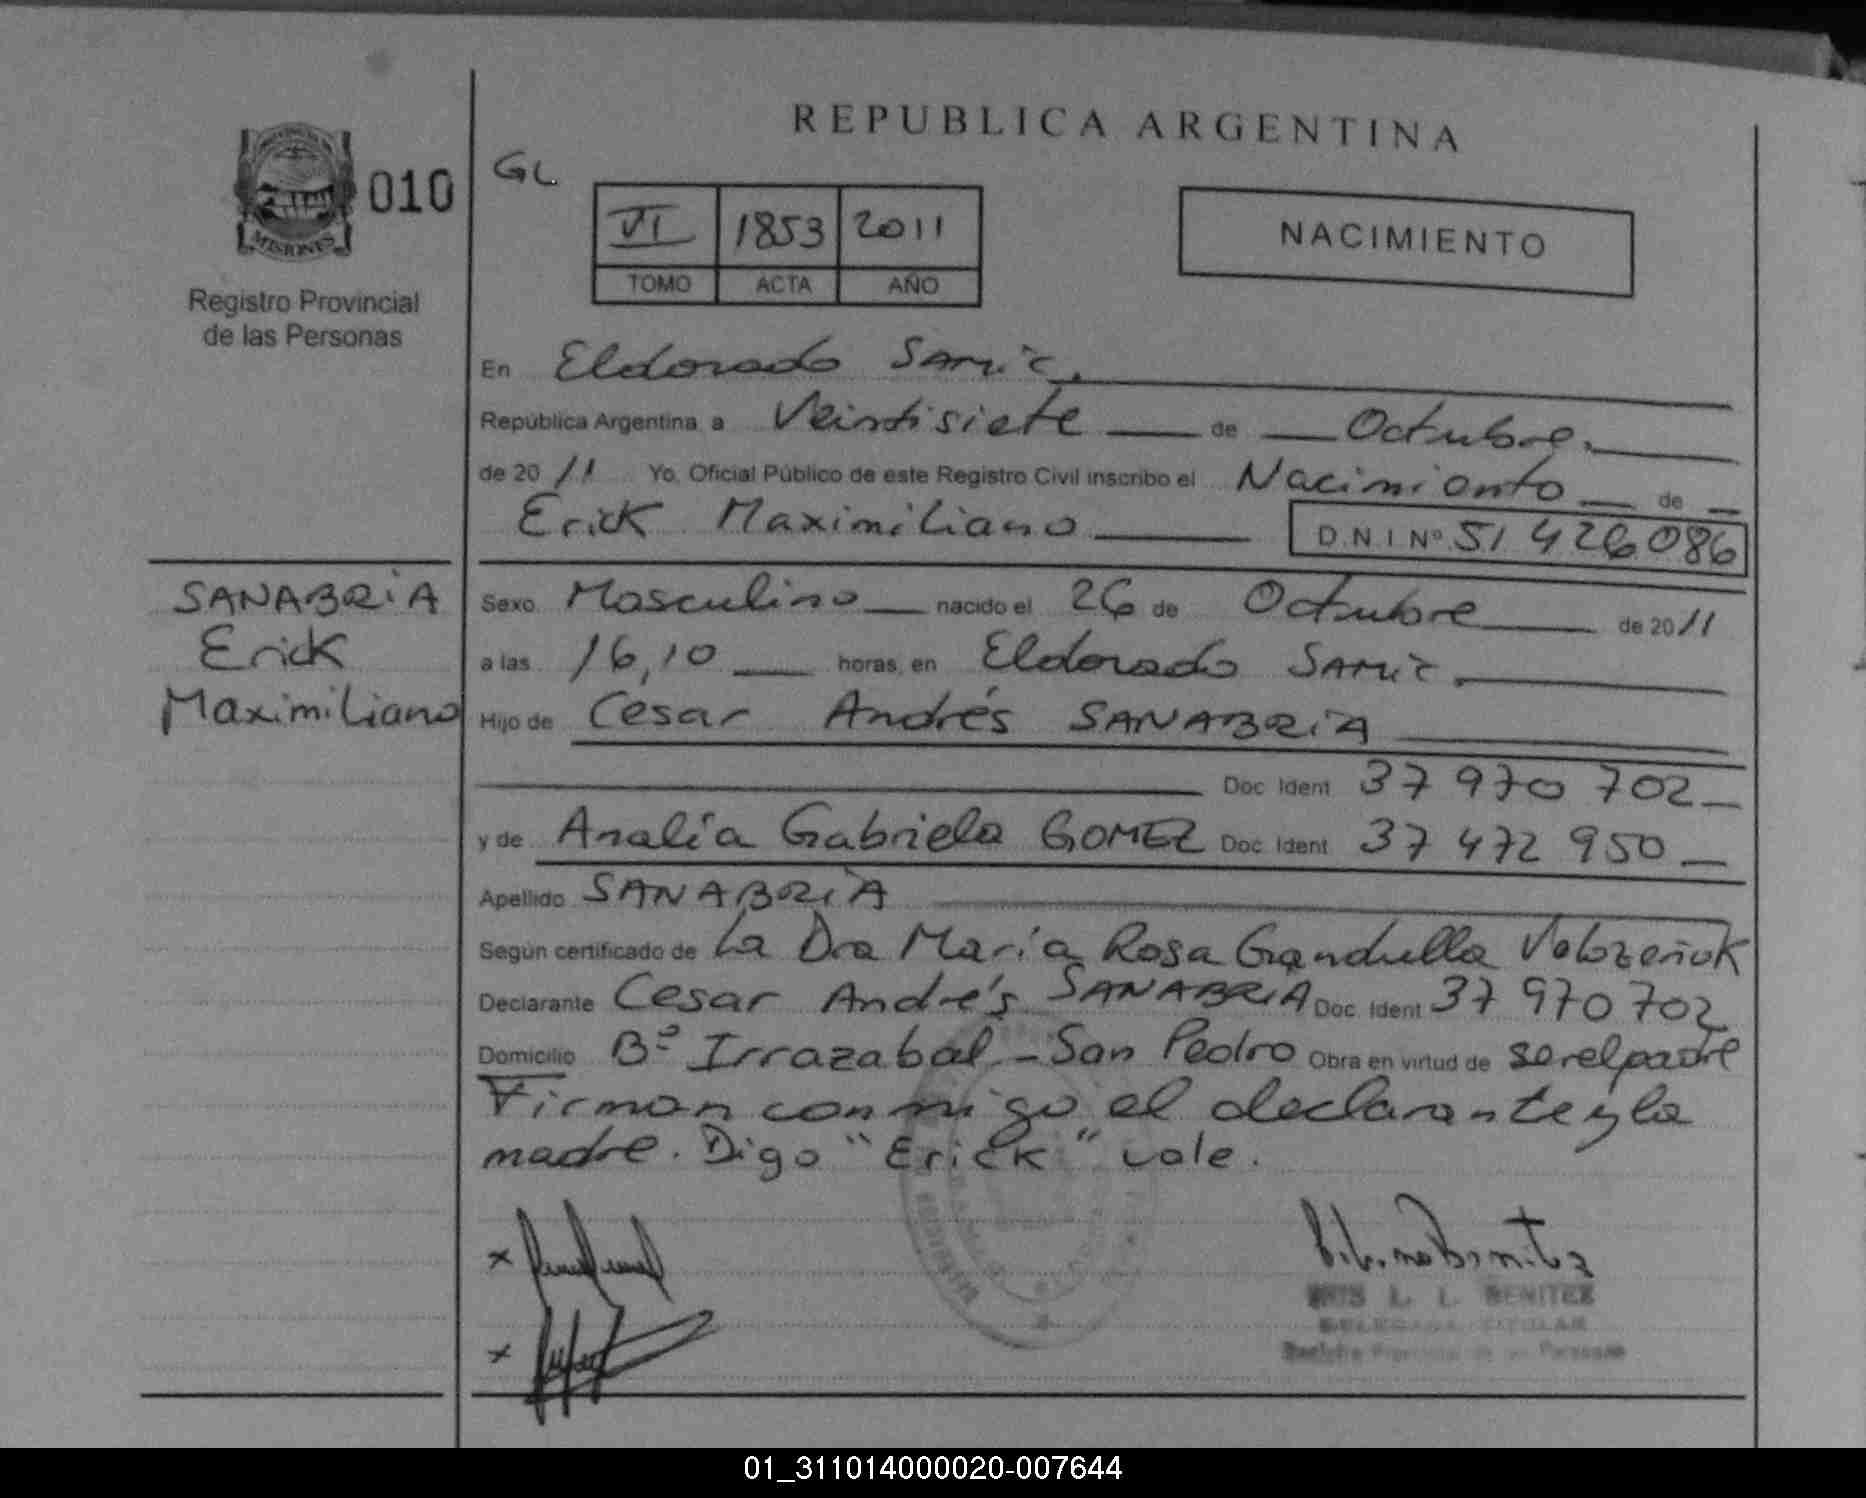 REPUBLICA ARGENTINA
MISIONES
010
GL
Registro Provincial
de las Personas
VI 1853 2011
TOMO ACTA AÑO
NACIMIENTO
En Eldorado SAMIC.
República Argentina, a Veintisiete de Octubre.
de 20 11 Yo, Oficial Público de este Registro Civil inscribo el Nacimiento de
Erick Maximiliano D.N.I Nº 51 426 086
SANABRIA
Erick
Maximiliano
Sexo Masculino nacido el 26 de Octubre de 20 11
a las 16,10 horas, en Eldorado SAMIC.
Hijo de Cesar Andrés SANABRIA
Doc. Ident. 37 970 702
y de Analía Gabriela GOMEZ Doc. Ident. 37 472 950
Apellido SANABRIA
Según certificado de La Dra María Rosa Gandulla
Declarante Cesar Andrés SANABRIA Doc. Ident. 37 970 702
Domicilio Bº Irrazabal - San Pedro Obra en virtud de ser el padre
Firman conmigo el declarante y la
madre. Digo "Erick" vale.
L. L. BENITEZ
TITULAR
01_311014000020-007644